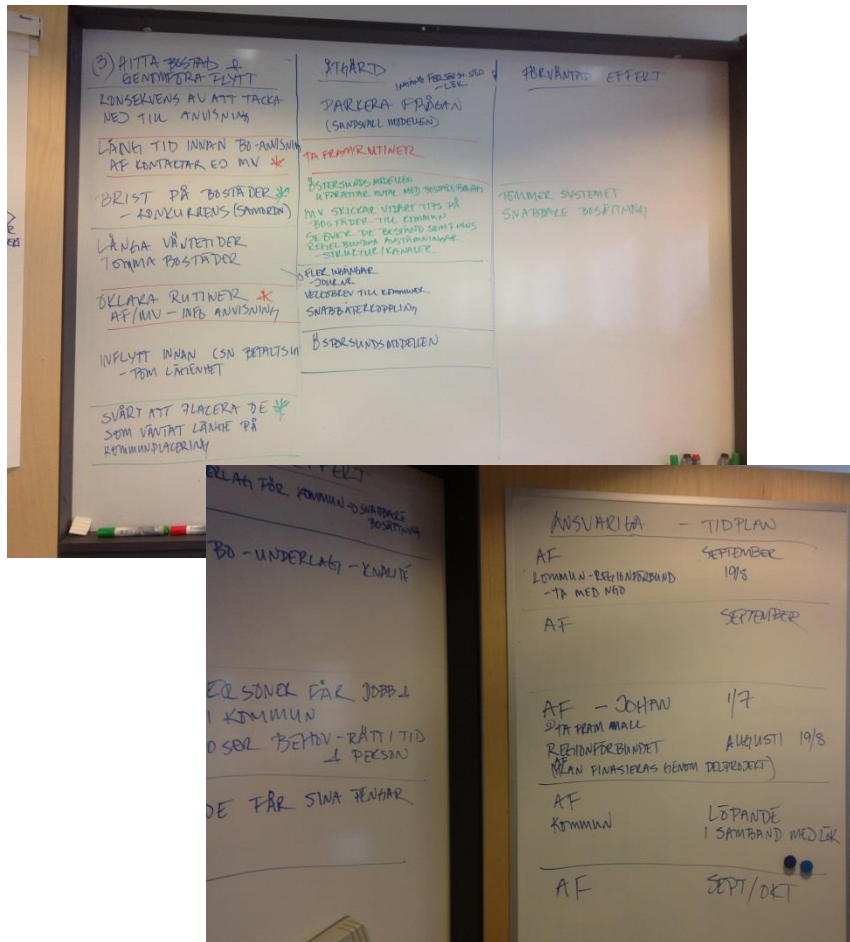 (3) HITTA BOSTAD &
GENOMFÖRA FLYTT
KONSEKVENS AV ATT TACKA
NEJ TILL ANVISNING
LÅNG TID INNAN BO-ANVISNING
AF KONTAKTAR EJ MV *
BRIST PÅ BOSTÄDER *
- KONKURRENS (SAMORDN)
LÅNGA VÄNTETIDER
TOMMA BOSTÄDER
OKLARA RUTINER *
AF/MV - INFO ANVISNING
INFLYTT INNAN CSN BETALTS UT
- TOM LÄGENHET
SVÅRT ATT PLACERA DE *
SOM VÄNTAT LÄNGE PÅ
KOMMUNPLACERING
ÅTGÄRD
- LÖK
PARKERA FRÅGAN
(SUNDSVALL MODELLEN)
TA FRAM RUTINER
ÖSTERSUNDSMODELLEN
UPPRÄTTAR AVTAL MED
MV SKICKAR VIDARE TIPS PÅ
BOSTÄDER TILL KOMMUN
SE ÖVER DE BESTÅND SOM FINNS
REGELBUNDNA AVSTÄMNINGAR
- STRUKTUR/KANALER
FLER INGÅNGAR
- JOUR NR
VECKOBREV TILL KOMMUNER
SNABB ÅTERKOPPLING
ÖSTERSUNDSMODELLEN
FÖRVÄNTAD EFFEKT
TÖMMER SYSTEMET
SNABBARE BOSÄTTNING
EFFEKT
ERLAG FÖR KOMMUN → SNABBARE
BOSÄTTNING
BO - UNDERLAG - KVALITÉ
ERSONER FÅR JOBB &
I KOMMUN
OSER BEHOV - RÄTT I TID
& PERSON
DE FÅR SINA PENGAR
ANSVARIGA - TIDPLAN
AF SEPTEMBER
KOMMUN - REGIONFÖRBUND 19/8
- TA MED NGO
AF SEPTEMBER
AF - JOHAN 1/7
TA FRAM MALL
REGIONFÖRBUNDET AUGUSTI 19/8
(KAN FINASIERAS GENOM DELPROJEKT)
AF LÖPANDE
KOMMUN I SAMBAND MED LÖK
AF SEPT/OKT